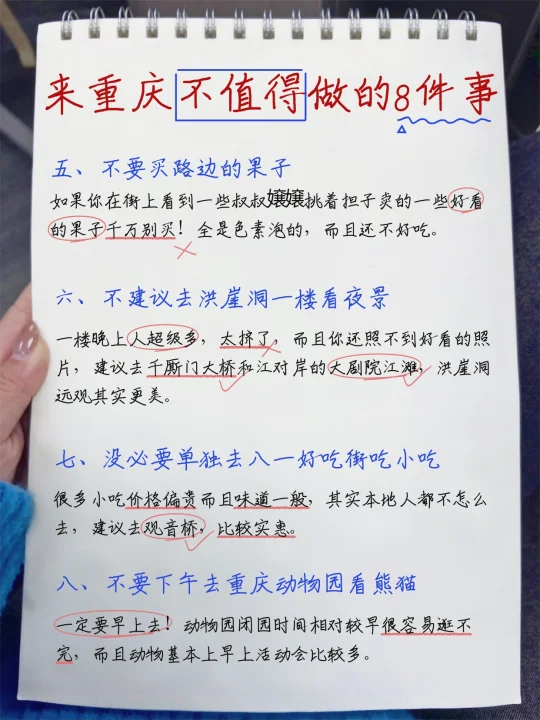 来重庆不值得做的8件事
五、不要买路边的果子
如果你在街上看到一些叔叔嬢嬢挑着担子卖的一些好看
的果子千万别买！全是色素泡的，而且还不好吃。
六、不建议去洪崖洞一楼看夜景
一楼晚上人超级多，太挤了，而且你还照不到好看的照
片，建议去千厮门大桥和江对岸的大剧院江滩，洪崖洞
远观其实更美。
七、没必要单独去八一好吃街吃小吃
很多小吃价格偏贵而且味道一般，其实本地人都不怎么
去，建议去观音桥，比较实惠。
八、不要下午去重庆动物园看熊猫
一定要早上去！动物园闭园时间相对较早很容易逛不
完，而且动物基本上早上活动会比较多。